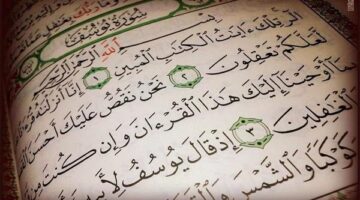 وَمَا رَبُّكَ
سُورَةُ يُوسُفَ
بِسْمِ ٱللَّهِ ٱلرَّحْمَٰنِ ٱلرَّحِيمِ
الٓر تِلْكَ ءَايَٰتُ ٱلْكِتَٰبِ ٱلْمُبِينِ ١ إِنَّآ أَنزَلْنَٰهُ
لَّعَلَّكُمْ تَعْقِلُونَ ٢ نَحْنُ نَقُصُّ عَلَيْكَ أَحْسَنَ
بِمَآ أَوْحَيْنَآ إِلَيْكَ هَٰذَا ٱلْقُرْءَانَ وَإِن كُنتَ مِن
ٱلْغَٰفِلِينَ ٣ إِذْ قَالَ يُوسُفُ
كَوْكَبًا وَٱلشَّمْسَ